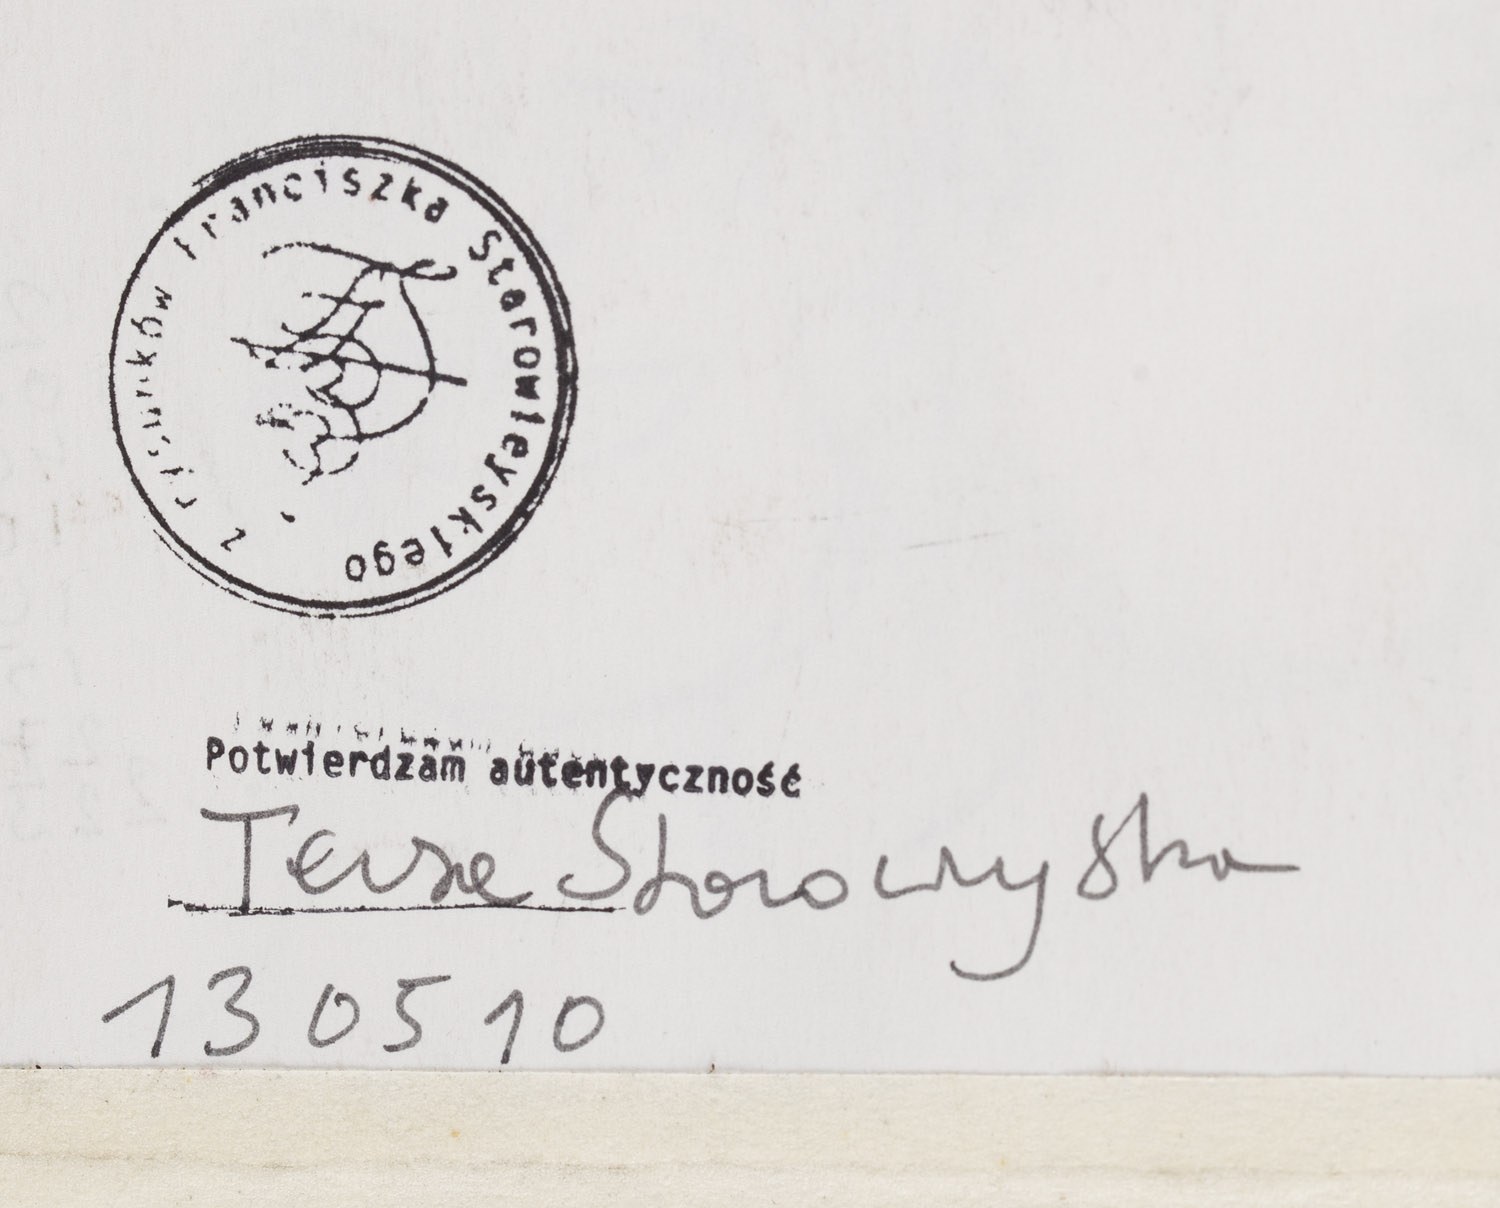 z rysunków Franciszka Starowieyskiego
Potwierdzam autentyczność
Teresa Starowieyska
13 05 10